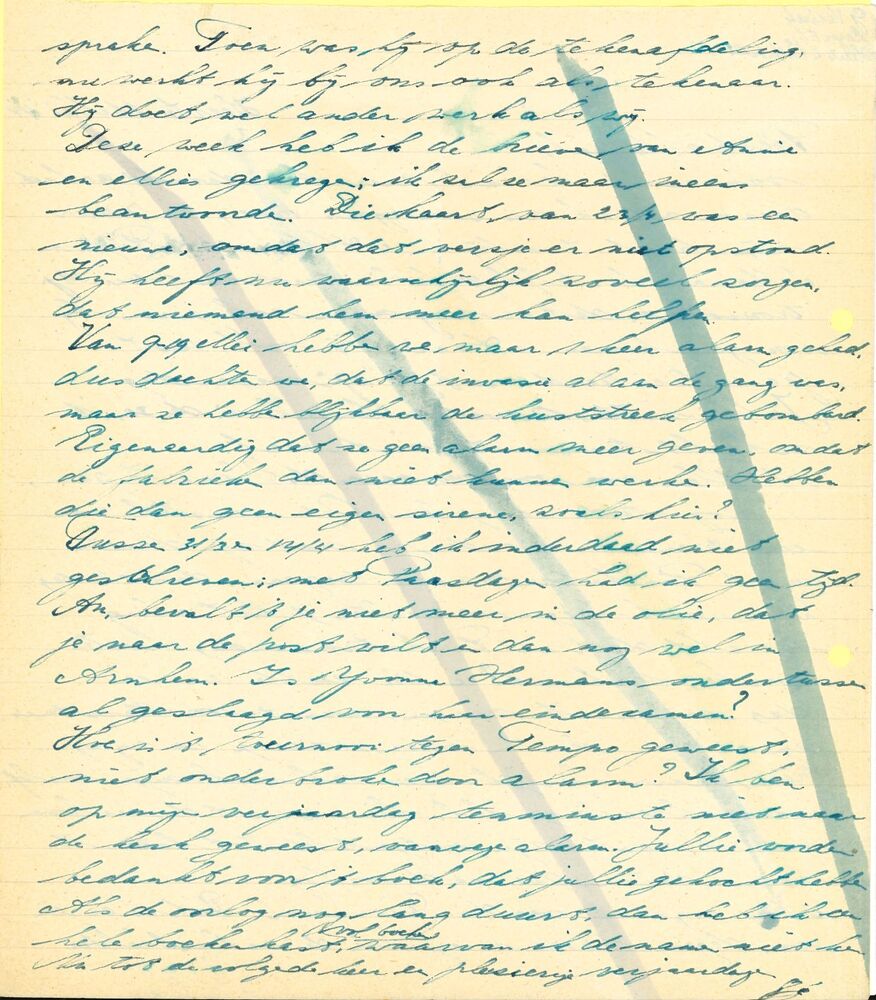 sprake. Toen was hij op de tekenafdeling,
nu werkt hij bij ons ook als tekenaar.
Hij doet wel ander werk als wij.
Deze week heb ik de brieven van Annie
en Ellies gekregen; ik zal ze maar ineens
beantwoorde. Die kaart, van 23/4 was een
nieuwe, omdat dat versje er niet opstond.
Hij heeft nu waarschijnlijk zoveel zorgen,
dat niemand hem meer kan helpen.
Van 9-19 Mei hebbe we maar 1 keer alarm gehad,
dus dachte we, dat de invasie al aan de gang was,
maar ze hebbe blijkbaar de kuststreek gebombard.
Eigenaardig dat ze geen alarm meer geven, omdat
de fabrieke dan niet kunnen werke. Hebben
die dan geen eigen sirene, zoals hier?
Tusse 31/3 en 14/4 heb ik inderdaad niet
geschreven; met Paasdagen had ik geen tijd.
An, bevalt 't je niet meer in de olie, dat
je naar de post wilt en dan nog wel in
Arnhem. Is Yvonne Hermans ondertussen
al geslaagd voor haar eindexamen?
Hoe is 't tournooi tegen Tempo geweest,
niet onderbroke door alarm? Ik ben
op mijn verjaardag tenminste niet naar
de kerk geweest, vanwege alarm. Jullie worden
bedankt voor 't boek, dat jullie gekocht hebbe
Als de oorlog nog lang duurt, dan heb ik een
hele boekenkast, vol boeken waarvan ik de name niet ken
Nu tot de volgende keer en plezierige verjaardage
Gé